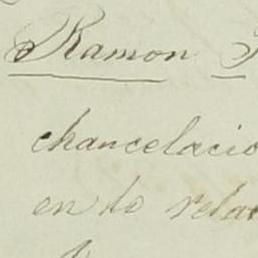 Ramon
chancelacio
en lo rela